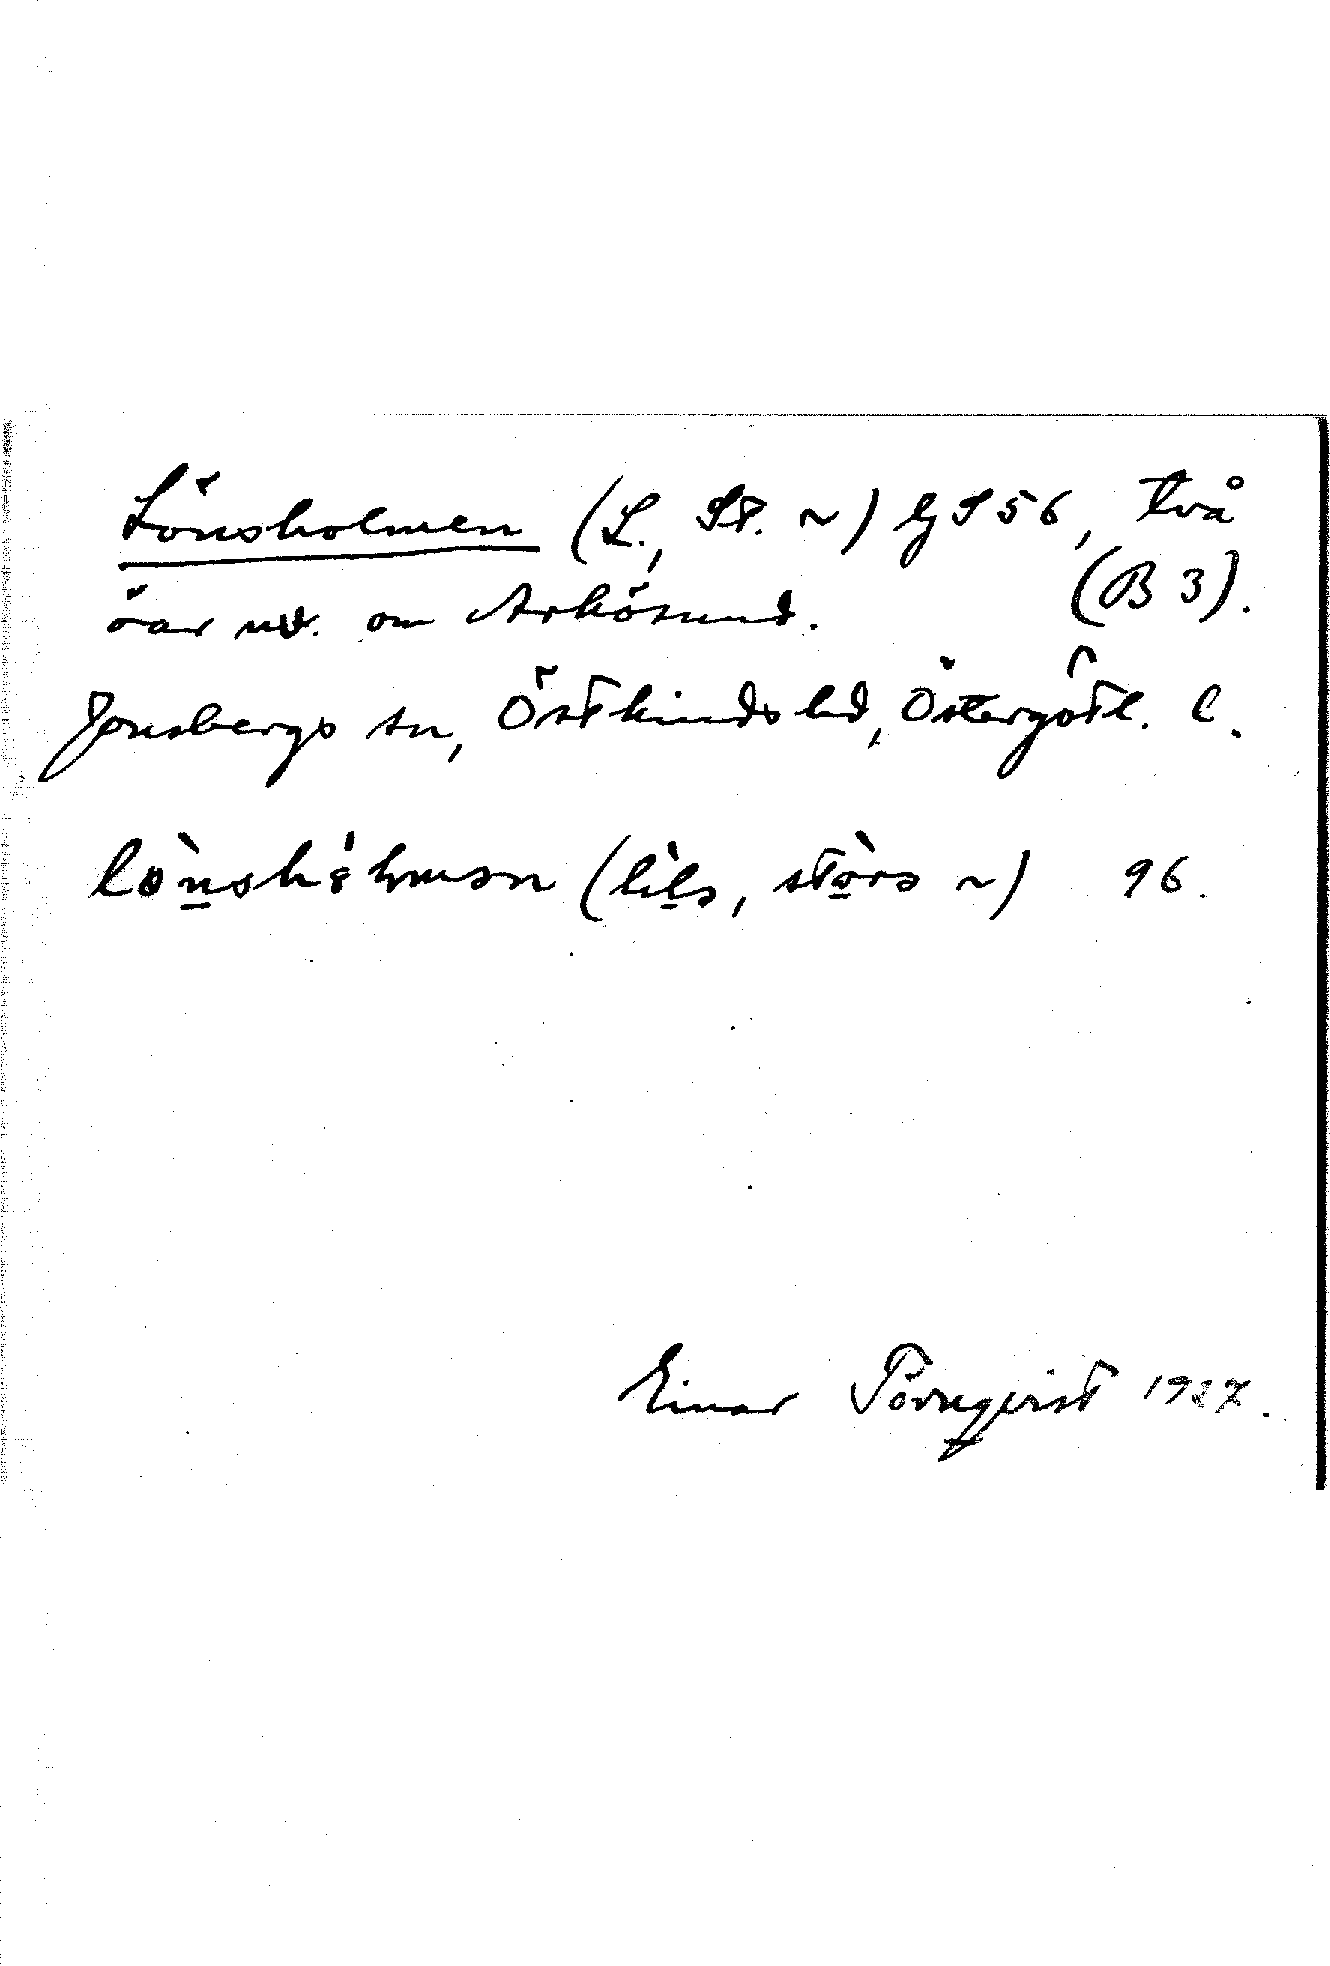 Lönsholmen (L., St. ~) GS 56, två
öar nv. om Arkösund. (B 3).
Jonsbergs sn, Östkinds hd, Östergötl. l.
(lila, stora ~) 96.
Einar Törnqvist 1927.